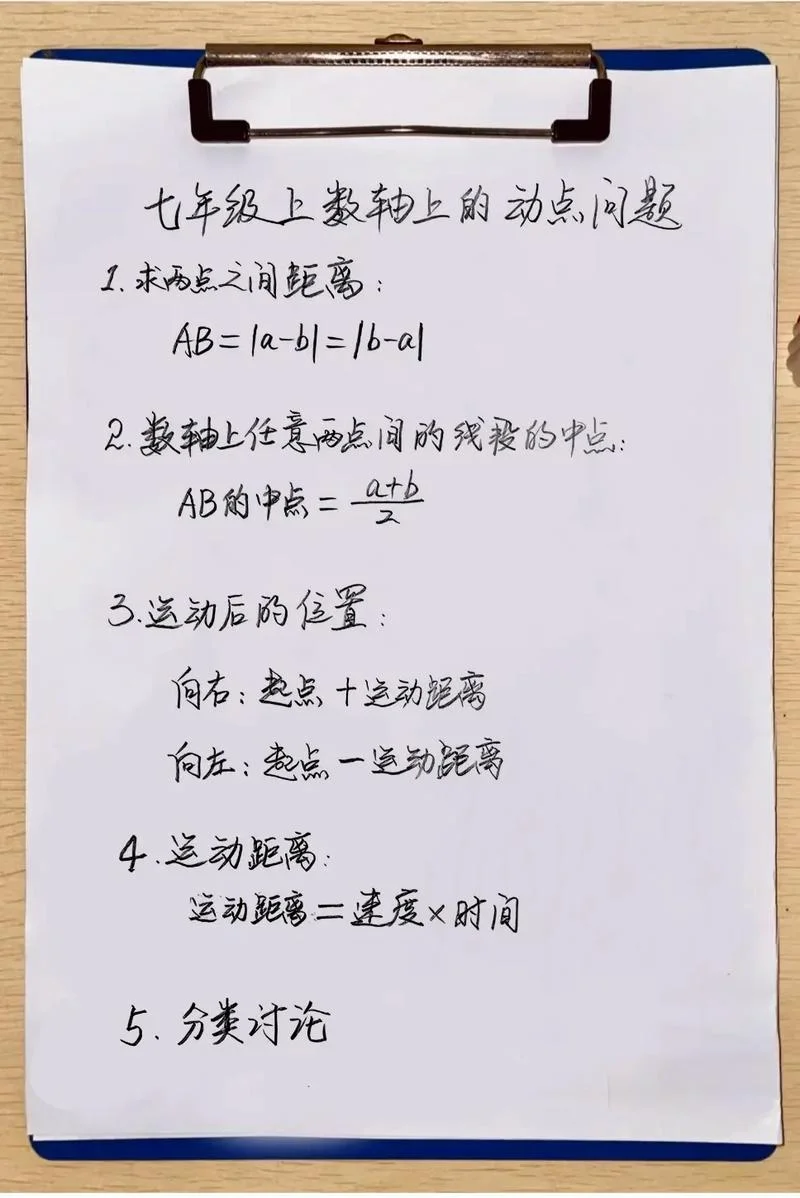 七年级上数轴上的动点问题
1.求两点之间距离:
AB=|a-b|=|b-a|
2.数轴上任意两点间的线段的中点:
AB的中点=\frac{a+b}{2}
3.运动后的位置:
向右:起点+运动距离
向左:起点-运动距离
4.运动距离:
运动距离=速度×时间
5.分类讨论